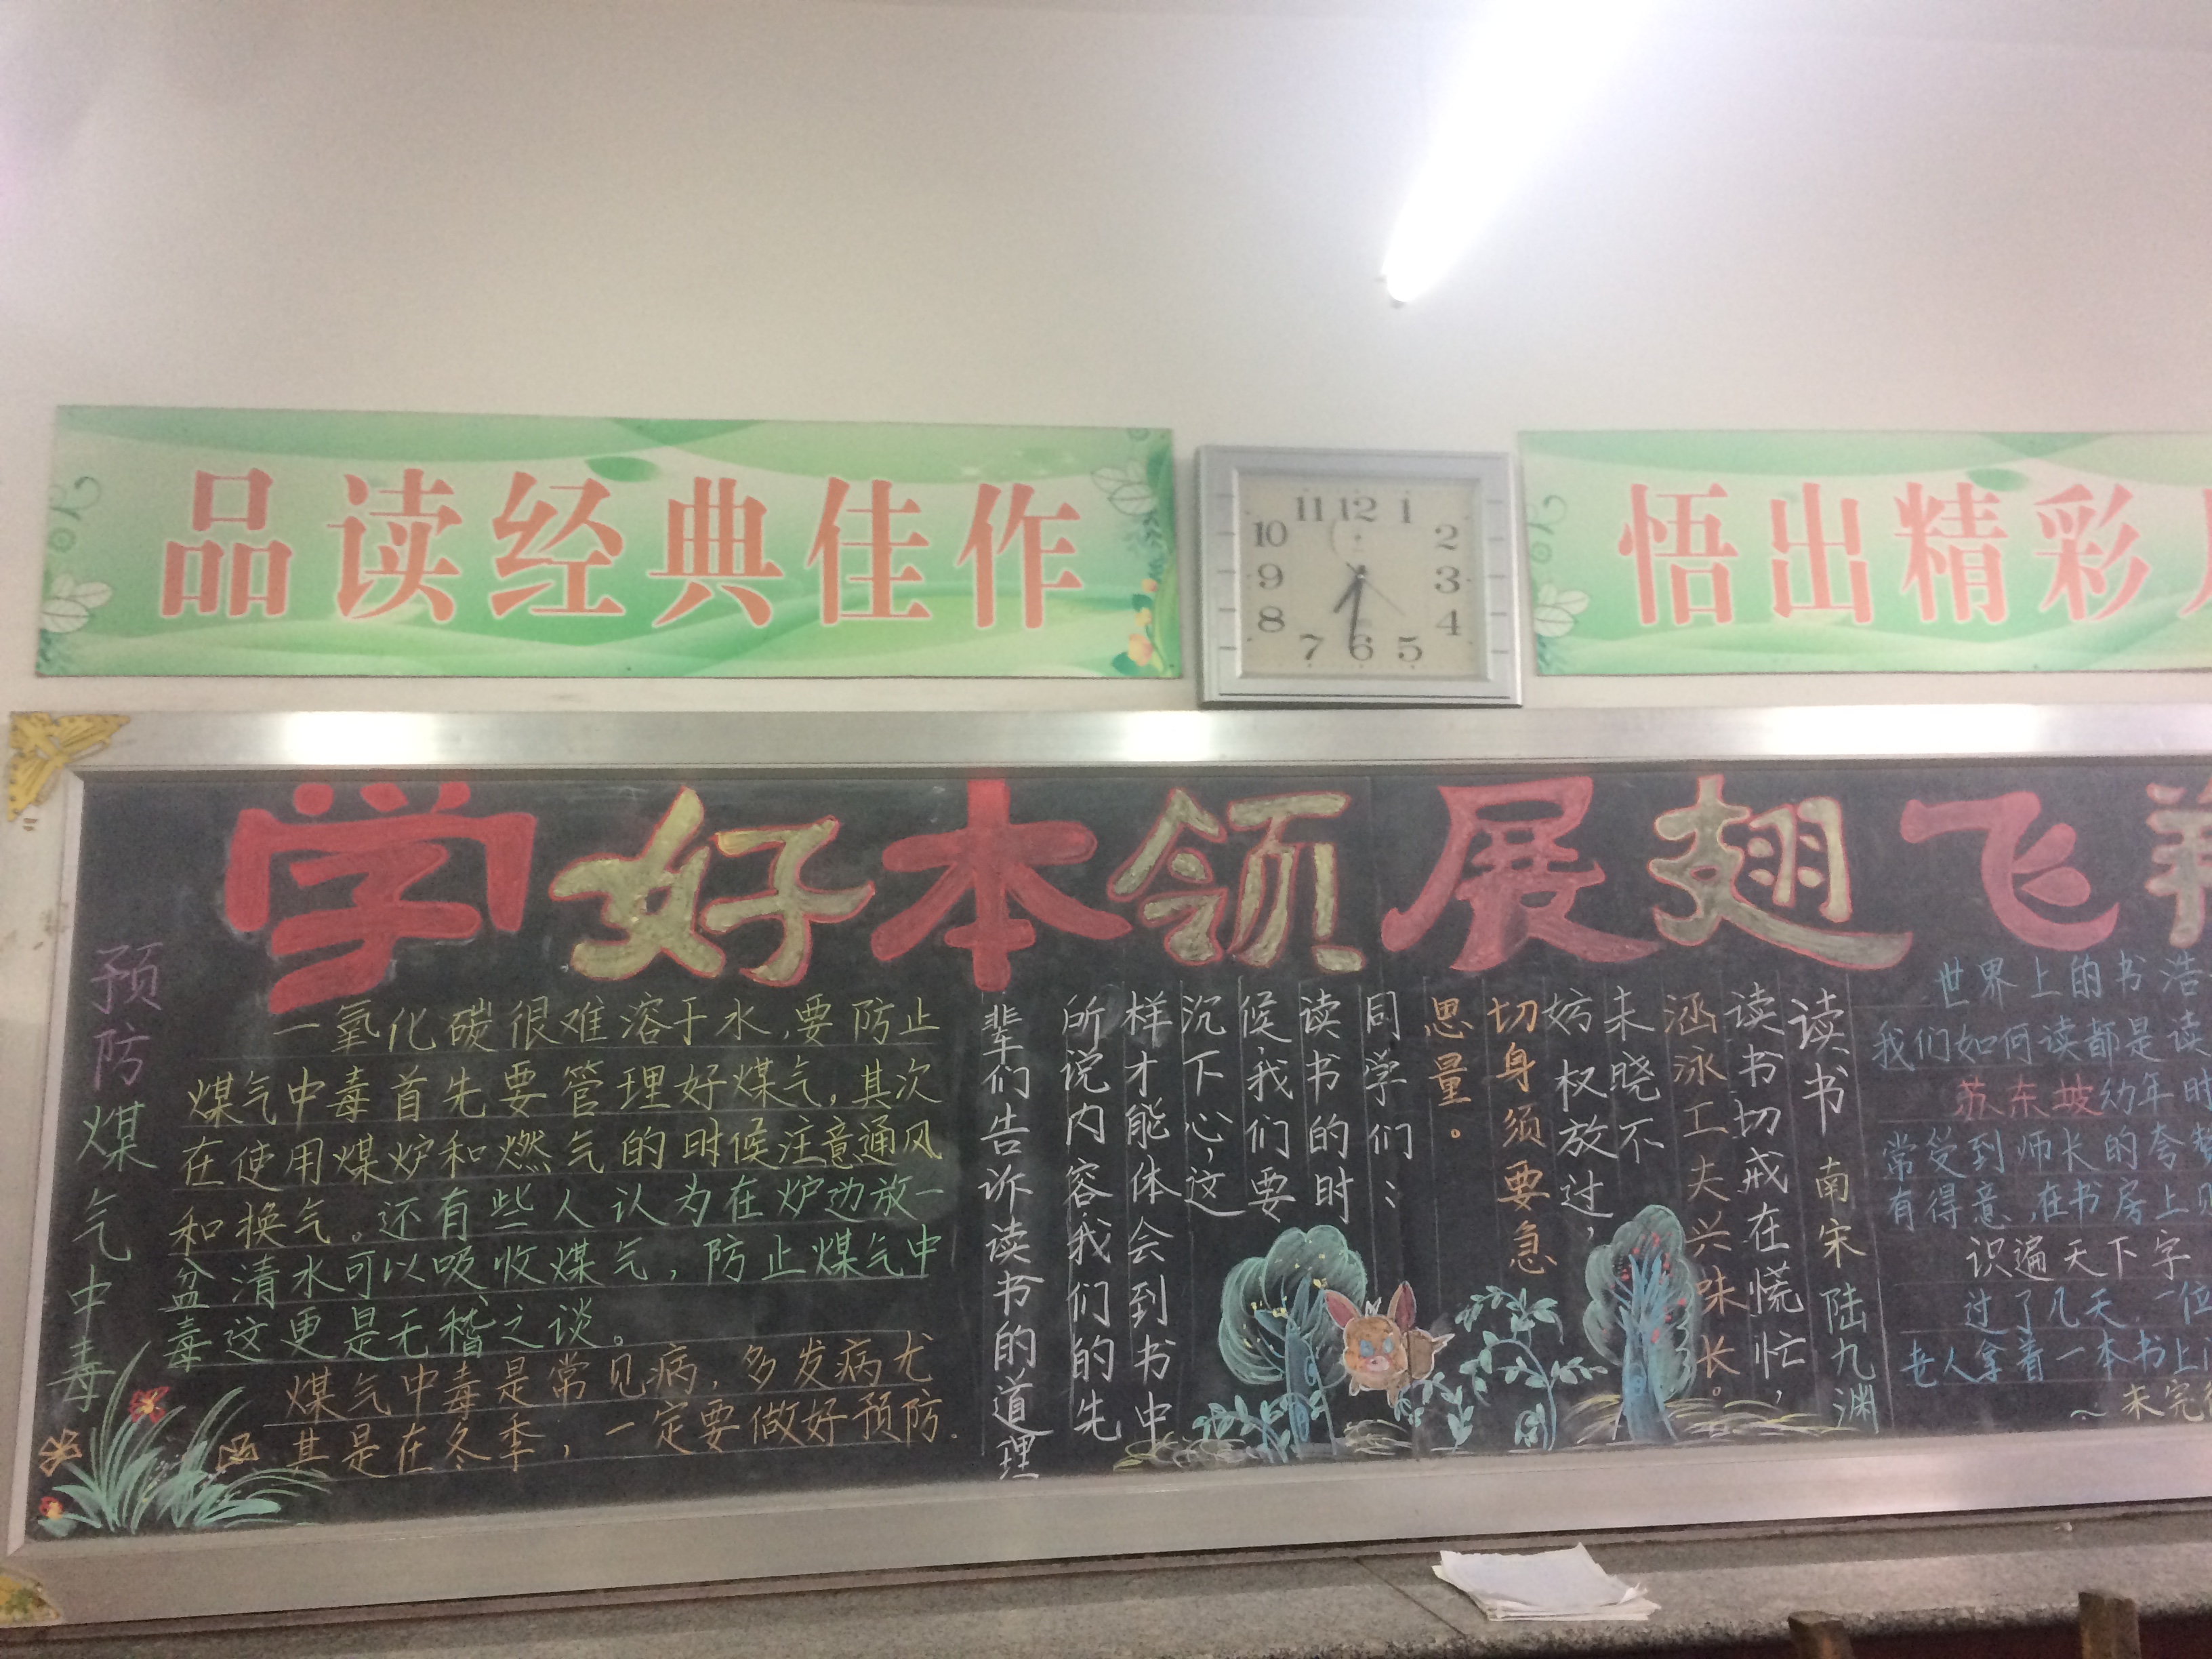 品读经典佳作
悟出精彩
11 12 1
10 2
9 3
8 4
7 6 5
学好本领展翅飞
预防煤气中毒
一氧化碳很难溶于水,要防止
煤气中毒首先要管理好煤气,其次
在使用煤炉和燃气的时候注意通风
和换气。还有些人认为在炉边放一
盆清水可以吸收煤气,防止煤气中
毒这更是无稽之谈。
煤气中毒是常见病,多发病尤
其是在冬季,一定要做好预防.
读书 南宋 陆九渊
读书切戒在慌忙,
涵泳工夫兴味长。
未晓不
妨权放过,
切身须要急
思量。
同学们:
读书的时
候我们要
沉下心,这
样才能体会到书中
所说内容我们的先
辈们告诉读书的道理
世界上的书浩
我们如何读都是读
苏东坡幼年时
常受到师长的夸赞
有得意,在书房上
识遍天下字
过了几天,一位
老人拿着一本书上
~未完